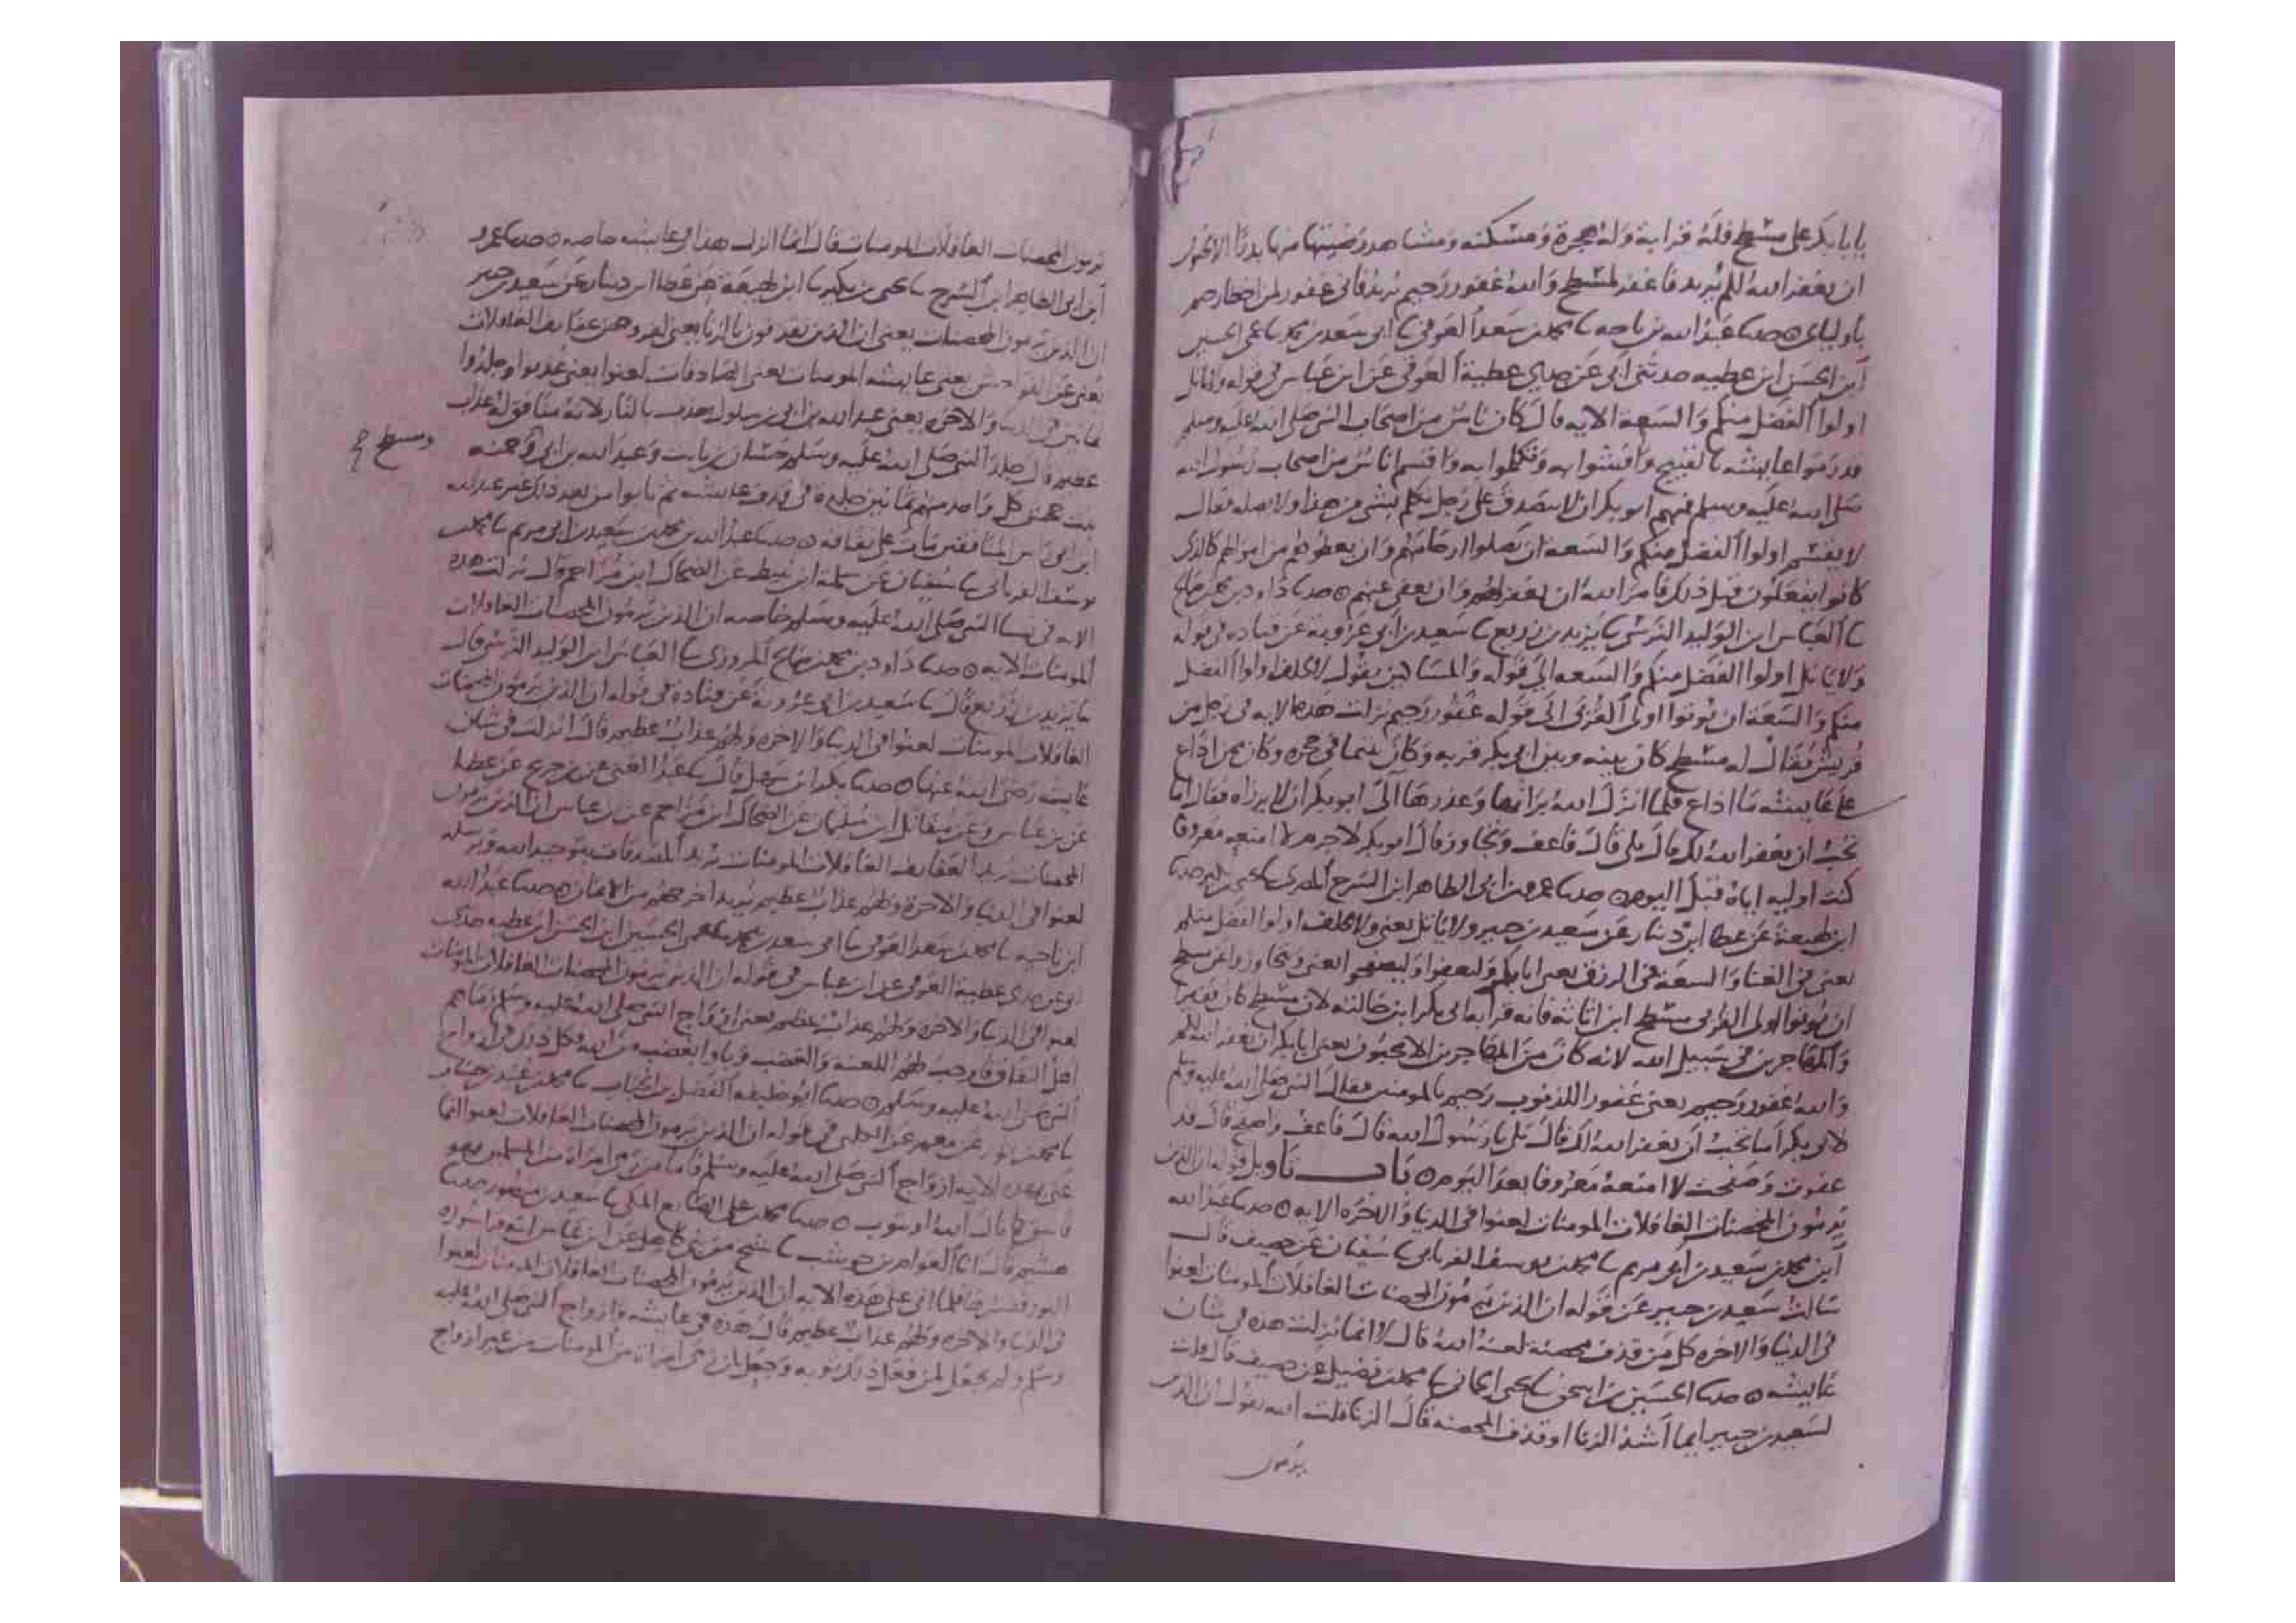 يابا بكر على مسطح فله قرابة وله هجرة ومسكنة ومشاهد رضيتها منها بدر الا تحبون
ان يغفر الله لكم يريد فاغفر لمسطح والله غفور رحيم يريد فاني غفور لمن اخطا رحيم
باوليائى ○ حدثنا عبد الله بن ناجيه نا محمد بن سعد العوفي نا ابي سعد بن محمد نا عمي الحسين
ابن الحسن ابن عطيه حدثني ابي عن جدي عطية العوفي عن ابن عباس في قوله ولا ياتل
اولوا الفضل منكم والسعة الايه قال كان ناس من اصحاب النبي صلى الله عليه وسلم
قد رموا عايشه بالقبيح وافشوا به وتكلموا به واقسم اناس من اصحاب رسول الله
صلى الله عليه وسلم فيهم ابو بكر ان لا يتصدق على رجل تكلم بشي من هذا ولا يصله فقال
لا يقسم اولوا الفضل منكم والسعه ان يصلوا ارحامهم وان يعطوهم من اموالهم كالذي
كانوا يفعلون قبل ذلك فامر الله ان يغفر لهم وان يعفى عنهم ○ حدثنا داود بن محمد بن صالح
نا العباس ابن الوليد النرسي نا يزيد بن زريع نا سعيد بن ابي عروبة عن قتاده في قوله
ولا ياتل اولوا الفضل منكم والسعه الى قوله والمساكين يقول لا يحلف اولوا الفضل
منكم والسعة ان يوتوا اولى القربى الى قوله غفور رحيم نزلت هذه الايه في رجل من
قريش يقال له مسطح كان بينه وبين ابي بكر قربه وكان يتيما في حجره وكان ممن اذاع
على عايشه ما اذاع فلما انزل الله براتها وعذرها آلى ابو بكر ان لا يرزاه فقال اما
تحب ان يغفر الله لك قال بلى قال فاعف وتجاوز قال ابو بكر لا جرم لا امنعه معروفا
كنت اوليه اياه قبل اليوم ○ حدثنا عمرو بن ابي الطاهر ابن السرح المصري نا يحيى بن بكير حدثنا
ابن لهيعة عن عطا ابن دينار عن سعيد بن جبير ولا ياتل يعني ولا يحلف اولوا الفضل منكم
يعني في الغنا والسعة في الرزق يعني ابا بكر وليعفوا وليصفحوا يعني وتجاوزوا عن مسطح
ان يوتوا اولى القربى مسطح ابن اثاثه فانه قرابه ابي بكر ابن خالته لان مسطح كان فقيرا
والمهاجرين في سبيل الله لانه كان من المهاجرين الا تحبون يعني ابا بكر ان يغفر الله لكم
والله غفور رحيم يعني غفور اللذنوب رحيم بالمومنين فقال النبي صلى الله عليه وسلم
لابي بكر اما تحب ان يغفر الله لك قال بلى يا رسول الله قال فاعف واصفح قال قد
عفوت وصفحت لا امنعه معروفا بعد اليوم ○ باب تاويل قوله ان الذين
يرمون المحصنات الغافلات المومنات لعنوا في الدنيا والاخره الايه ○ حدثنا عبد الله
ابن محمد بن سعيد بن ابي مريم نا محمد بن يوسف الفريابي نا سفيان عن خصيف قال
سالت سعيد بن جبير عن قوله ان الذين يرمون المحصنات الغافلات المومنات لعنوا
في الدنيا والاخره كل من قذف محصنة لعنه الله قال لا انما نزلت هذه في شان
عايشه ○ حدثنا الحسين بن اسحق نا يحيى الحماني نا محمد بن فضيل عن خصيف قال قلت
لسعيد بن جبير ايما اشد الزنا او قذف المحصنه قال الزنا قلت الله يقول ان الذين
يرمون
يرمون المحصنات الغافلات المومنات قال انما انزلت هذا في عايشه خاصه ○ حدثنا عمرو
ابن ابي الطاهر ابن السرح نا يحيى بن بكير نا ابن لهيعة عن عطا ابن دينار عن سعيد بن جبير
ان الذين يرمون المحصنات يعني ان الذين يقذفون بالزنا يعني لفروجهن عفايف الغافلات
يعني عن الفواحش يعني عايشه المومنات يعني الصادقات لعنوا يعني عذبوا وجلدوا
ثمانين في الدنيا والاخره يعني عبد الله بن ابي بن سلول يعذب بالنار لانه منافق له عذاب
عظيم قال جلد النبي صلى الله عليه وسلم حسان بن ثابت وعبد الله بن ابي وحمنه
ومسطح صح
بنت جحش كل واحد منهم ثمانين جلدة في قذف عايشه ثم تابوا من بعد ذلك غير عبد الله
ابن ابي راس المنافقين مات على نفاقه ○ حدثنا عبد الله بن محمد بن سعيد بن ابي مريم نا محمد بن
يوسف الفريابي نا سفيان عن سلمة ابن نبيط عن الضحاك ابن مزاحم قال نزلت هذه
الايه في نسا النبي صلى الله عليه وسلم خاصه ان الذين يرمون المحصنات الغافلات
المومنات الايه ○ حدثنا داود بن محمد بن صالح المروزي نا العباس ابن الوليد النرسي قال
نا يزيد بن زريع قال نا سعيد بن ابي عروبة عن قتادة في قوله ان الذين يرمون المحصنات
الغافلات المومنات لعنوا في الدنيا والاخره ولهم عذاب عظيم قال انزلت في شان
عايشه رضي الله عنها ○ حدثنا بكر ابن سهل قال نا عبد الغني عن بن جريج عن عطا
عن بن عباس وعن مقاتل ابن سليمان عن الضحاك ابن مزاحم عن بن عباس ان الذين يرمون
المحصنات يريد العفايف الغافلات المومنات يريد المصدقات بتوحيد الله وبرسله
لعنوا في الدنيا والاخرة ولهم عذاب عظيم يريد اخرجهم من الايمان ○ حدثنا عبد الله
ابن ناجيه نا محمد بن سعد العوفي نا ابي سعد بن محمد نا عمي الحسين ابن الحسن ابن عطيه حدثني
ابي عن جدي عطية العوفي عن ابن عباس في قوله ان الذين يرمون المحصنات الغافلات المومنات
لعنوا في الدنيا والاخره ولهم عذاب عظيم يعني ازواج النبي صلى الله عليه وسلم رماهم
اهل النفاق فاوجب لهم اللعنه والغضب وباوا بغضب من الله وكل ذلك في ازواج
النبي صلى الله عليه وسلم ○ حدثنا ابو خليفه الفضل بن الحباب نا محمد بن عبيد بن حساب
نا محمد بن ثور عن معمر عن الكلبي في قوله ان الذين يرمون المحصنات الغافلات لعنوا انما
عنى بهذه الايه ازواج النبي صلى الله عليه وسلم فاما من رمى امراة من المسلمين فهو
فاسق كما قال الله او يتوب ○ حدثنا محمد بن علي الصايغ المكي نا سعيد بن منصور حدثنا
هشيم قال انا العوام بن حوشب نا شيخ من بني كاهل عن ابن عباس انه قرا سورة
النور ففسرها فلما اتى على هذه الايه ان الذين يرمون المحصنات الغافلات المومنات لعنوا
في الدنيا والاخره ولهم عذاب عظيم قال هذه في عايشه وازواج النبي صلى الله عليه
وسلم ولم يجعل لمن فعل ذلك توبه وجعل لمن رمى امراة من المومنات من غير ازواج